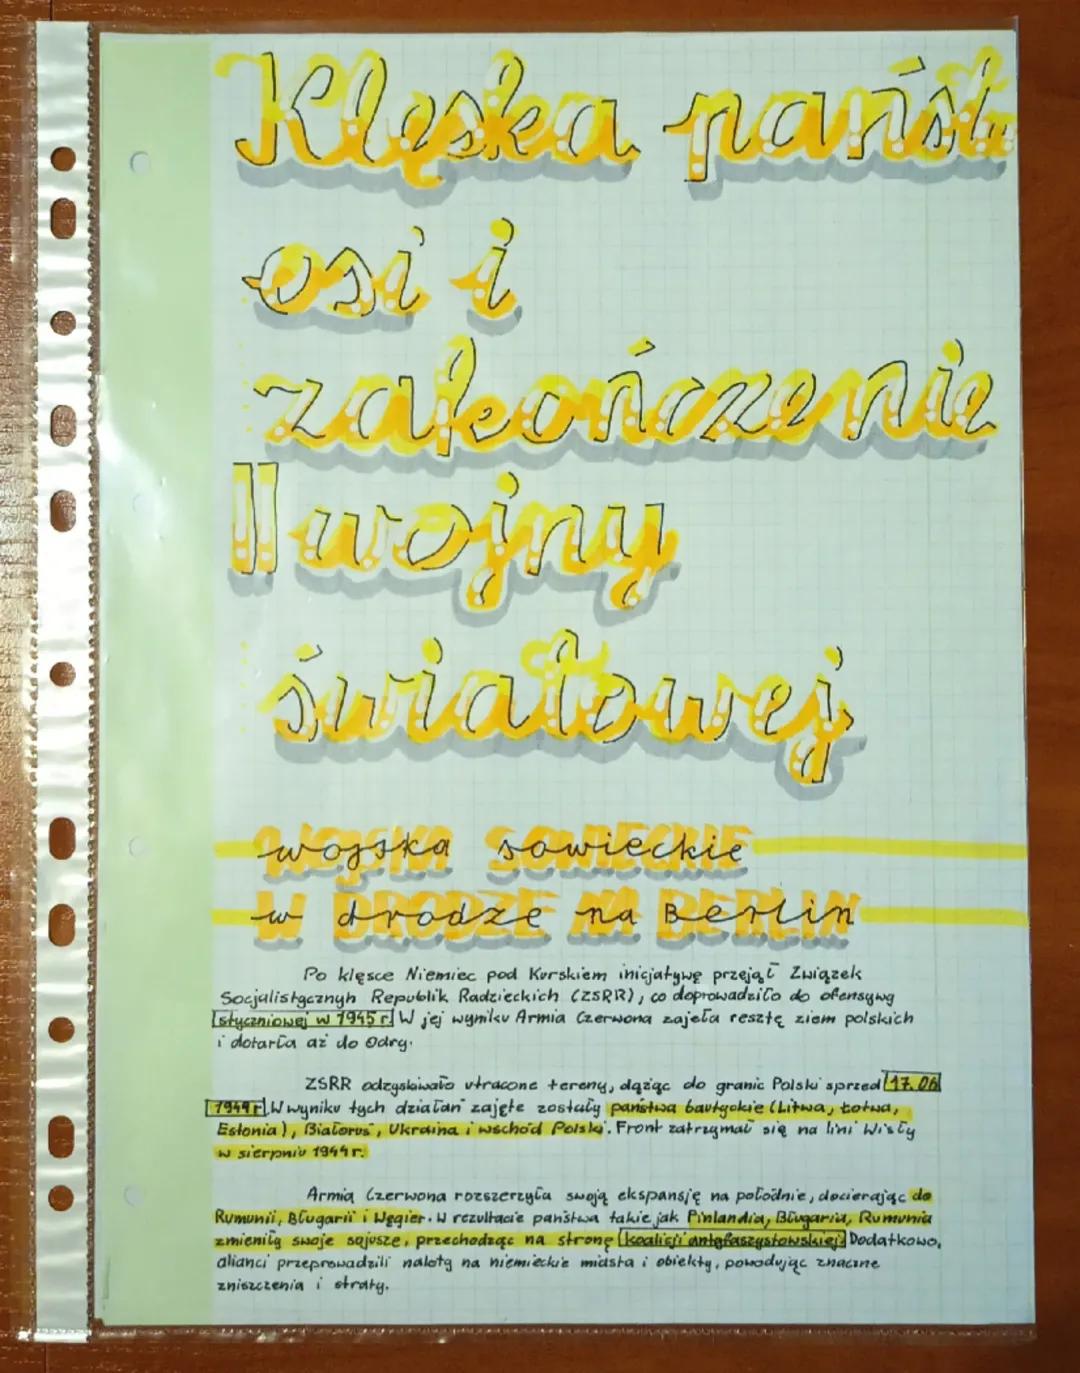 Klęska państw
osi i
zakończenie
II wojny
światowej
wojska sowieckie
w drodze na Berlin
Po klęsce Niemiec pod Kurskiem inicjatywę przejął Związek
Socjalistycznyh Republik Radzieckich (ZSRR), co doprowadziło do ofensywy
styczniowej w 1945 r. W jej wyniku Armia Czerwona zajęła resztę ziem polskich
i dotarła aż do Odry.
ZSRR odzyskiwało utracone tereny, dążąc do granic Polski sprzed 17.06
1949 r. W wyniku tych działań zajęte zostały państwa bałtyckie (Litwa, Łotwa,
Estonia), Białoruś, Ukraina i wschód Polski. Front zatrzymał się na lini Wisły
w sierpniu 1944 r.
Armia Czerwona rozszerzyła swoją ekspansję na połódnie, docierając do
Rumunii, Bługarii i Węgier. W rezultacie państwa takie jak Finlandia, Bługaria, Rumunia
zmieniły swoje sojusze, przechodząc na stronę koalicji antyfaszystowskiej. Dodatkowo,
alianci przeprowadzili naloty na niemieckie miasta i obiekty, powodując znaczne
zniszczenia i straty.